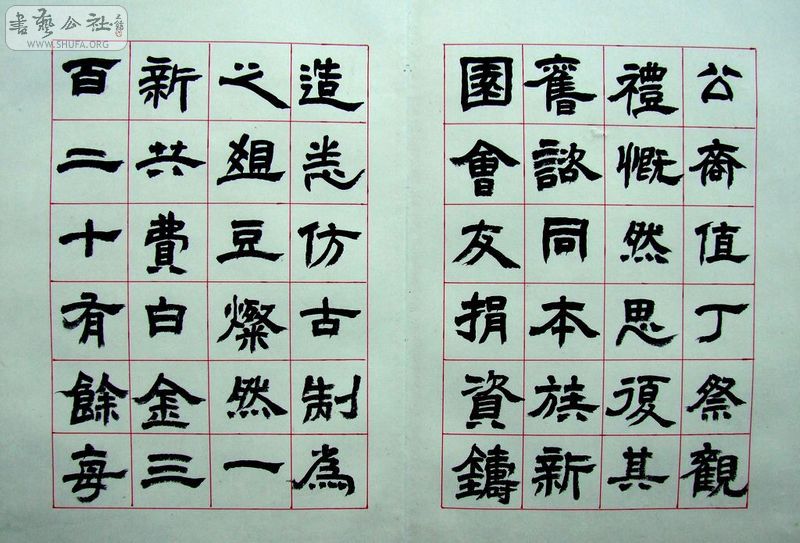 書藝公社
WWW.SHUFA.ORG
公裔值丁祭觀
禮慨然思復其
舊諮同本族新
園會友捐資鑄
造悉仿古制為
之俎豆燦然一
新共費白金三
百二十有餘每